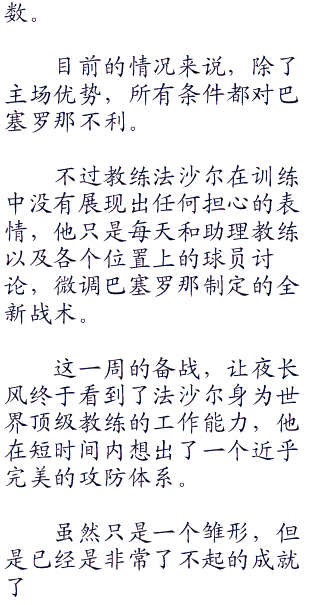 数。
目前的情况来说，除了
主场优势，所有条件都对巴
塞罗那不利。
不过教练法沙尔在训练
中没有展现出任何担心的表
情，他只是每天和助理教练
以及各个位置上的球员讨
论，微调巴塞罗那制定的全
新战术。
这一周的备战，让夜长
风终于看到了法沙尔身为世
界顶级教练的工作能力，他
在短时间内想出了一个近乎
完美的攻防体系。
虽然只是一个雏形，但
是已经是非常了不起的成就
了